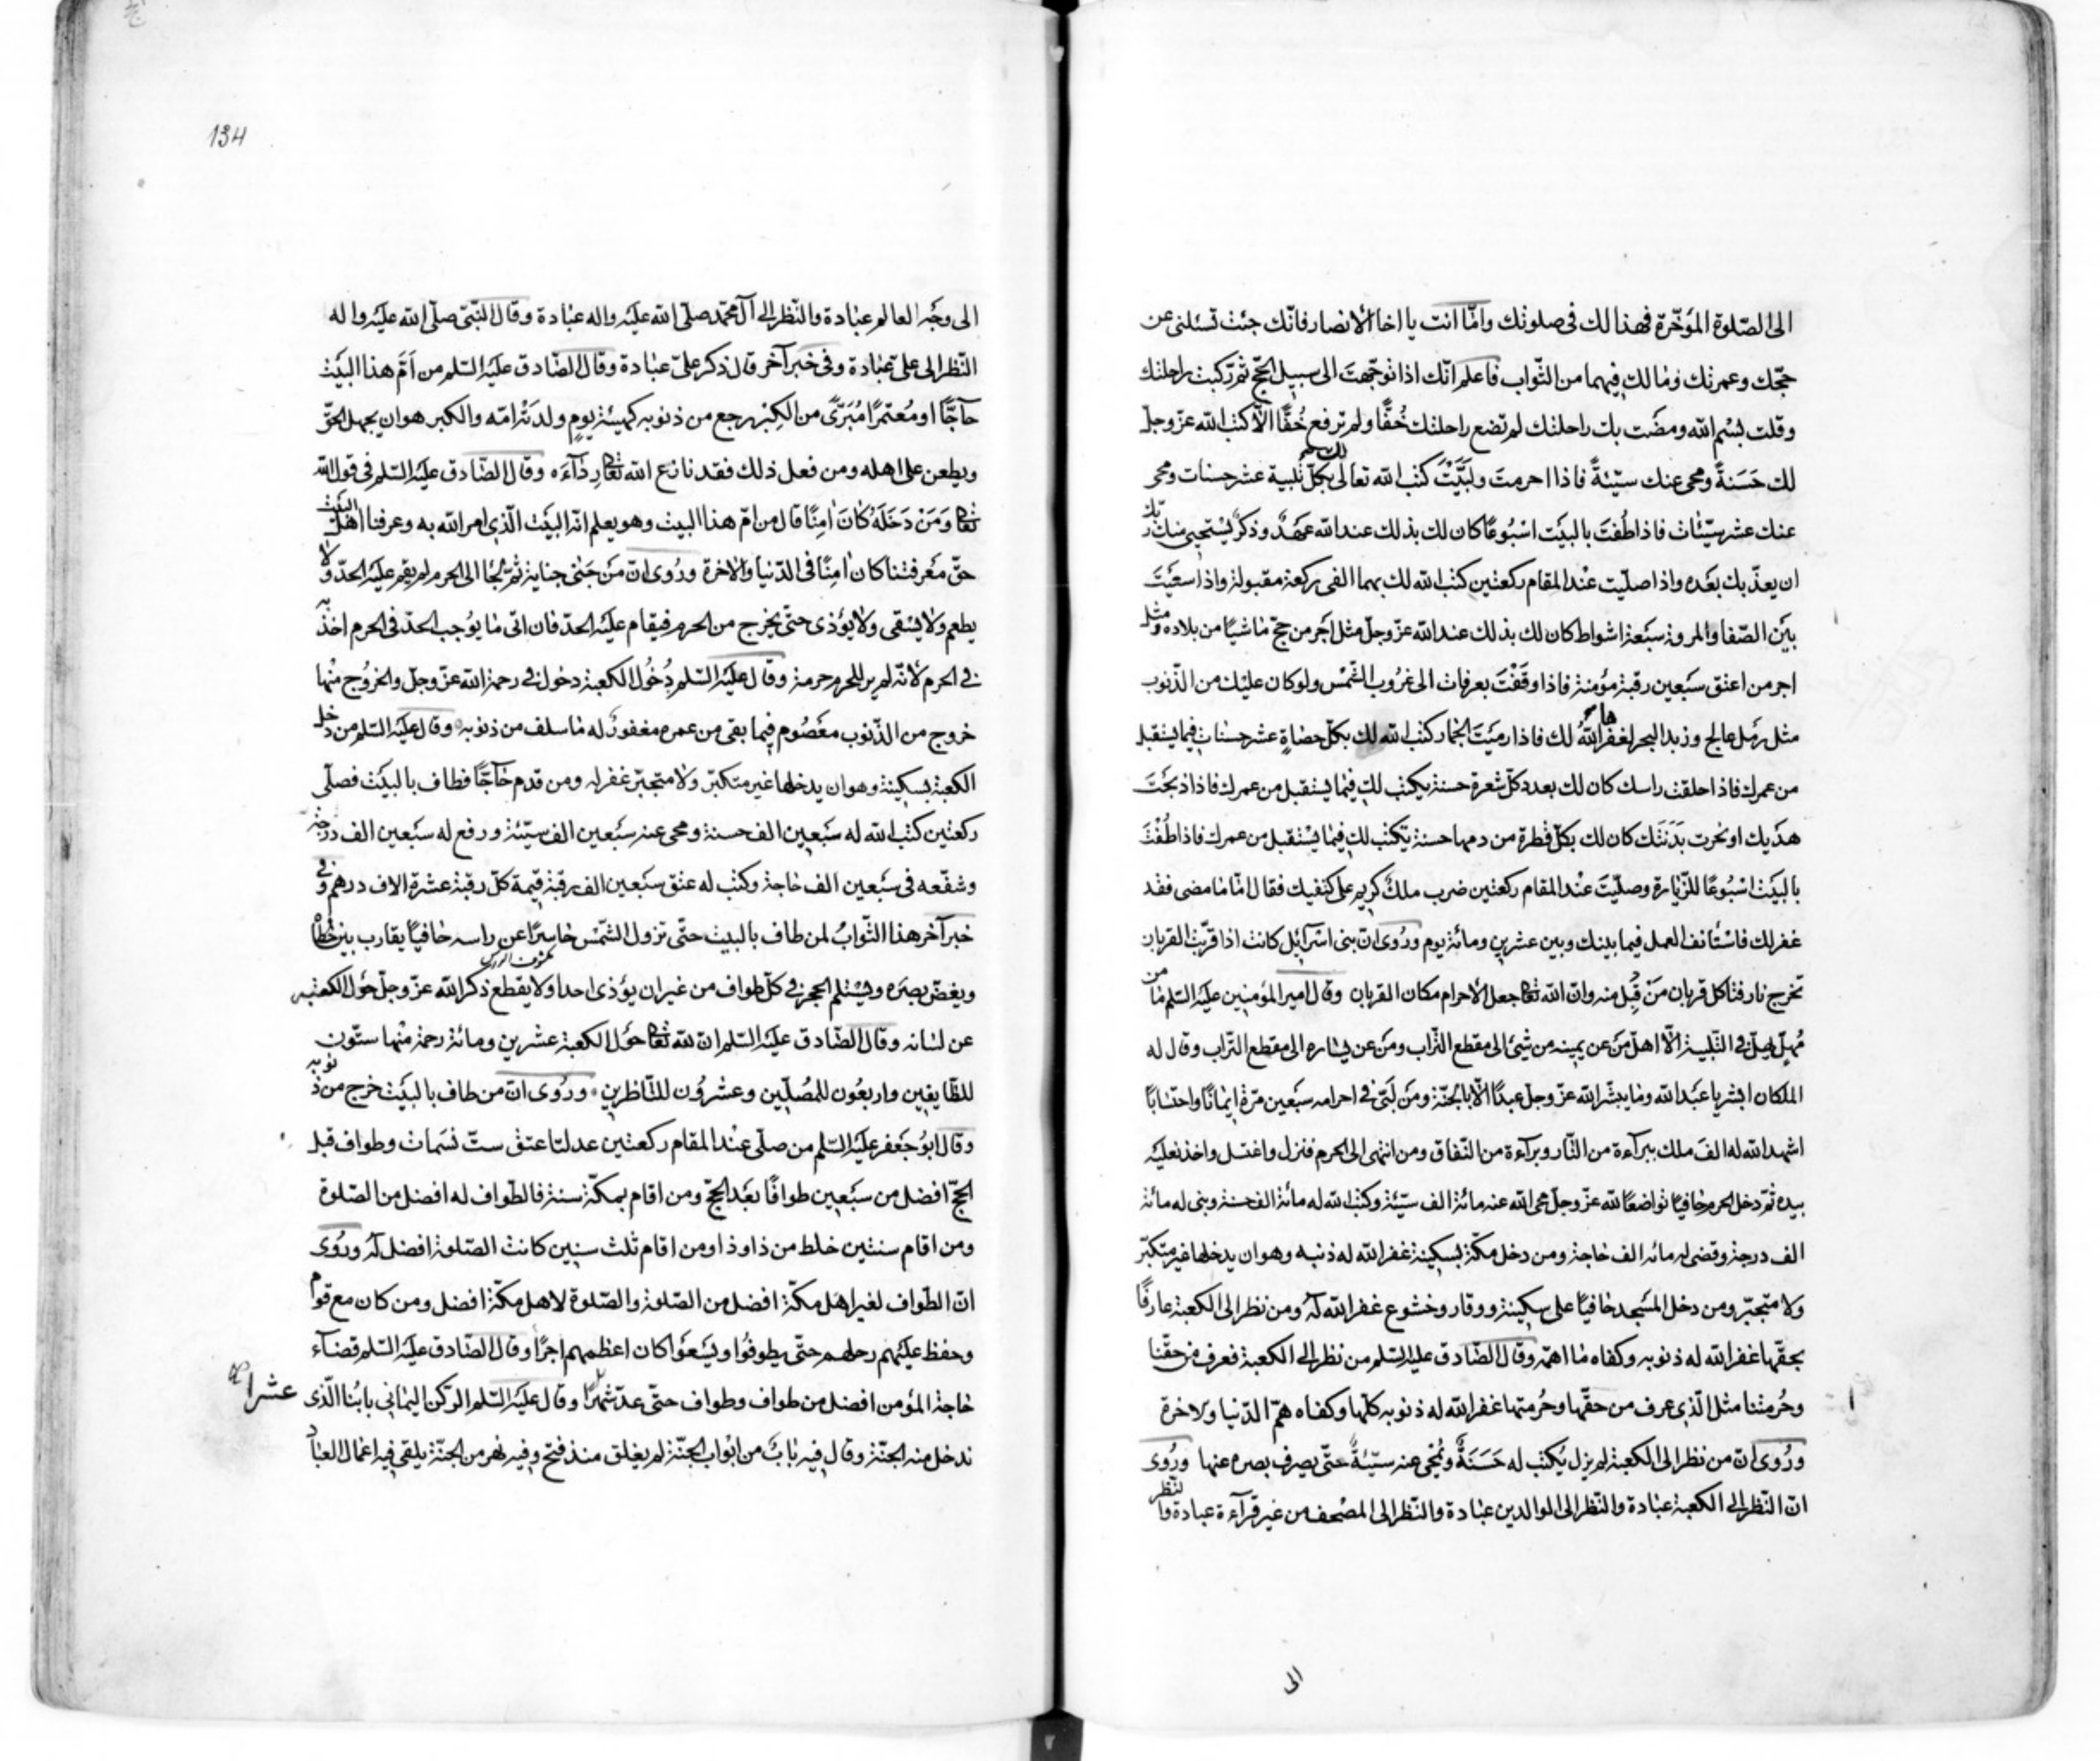 الى الصّلوة المؤخّرة فهذا لك فى صلوتك وامّا انت يا اخا الانصار فانّك جئت تسئلنى عن
حجّك وعمرتك وما لك فيهما من الثّواب فاعلم انّك اذا توجّهت الى سبيل الحجّ ثمّ ركبت راحلتك
وقلت بسْم الله ومضَت بك راحلتك لم تضع راحلتك خُفًّا ولم ترفع خُفًّا الّا كتب الله عزّ وجلّ
لك حَسَنةً ومحى عنك سيّئةً فاذا احرمتَ ولبَّيْتَ كتب الله تعالى لك بكلّ تلبية عشر حسنات ومحى
عنك عشر سيّئات فاذا طُفتَ بالبيَت اسْبُوعًا كان لك بذلك عند الله عَهدٌ وذكرٌ يسْتحيى منك ربّك
ان يعذّبك بعَده واذا صلّيت عنْد المقام ركعتين كتب الله لك بهما الفى ركعة مقبولة واذا سعَيْتَ
بيَن الصّفا والمروة سبَعة اشواط كان لك بذلك عند الله عزّ وجلّ مثل اجَر من حجّ ماشيًا من بلاده ومثل
اجر من اعتق سبَعين رقبة مؤمنة فاذا وقَفْتَ بعرفات الى غرُوب الشّمْس ولو كان عليْك من الذّنوب
مثل رمَل عالج وزبد البحر لغفرها اللهُ لك فاذا رميَتَ الجمار كتب الله لك بكلّ حصاةٍ عشر حسنات فيما يستقبل
من عمرك فاذا حلقتَ راسك كان لك بعدد كلّ شعرة حسنة يكتب لك فيما يستقبل من عمرك فاذا ذبحَتَ
هدَيك او نحرت بَدَنَتَك كان لك بكلّ قطرة من دمها حسنة يكتب لك فيما يسْتقبل من عمرك فاذا طُفْتَ
بالبيَت اسْبُوعًا للزّيارة وصلّيْتَ عنْد المقام ركعتين ضرب ملكٌ كريم على كتفيك فقال امّا ما مضى فقد
غفر لك فاسْتأنف العمل فيما بينك وبين عشرين ومائة يوم ورُوى انّ بنى اسرآئيل كانت اذا قرّبت القربان
تخرج نار فتاكل قربان مَنْ قُبِل منه وانّ الله تعالى جعل الاحرام مكان القربان وقال امير المؤمنين عليَه السّلم ما من
مُهِلّ يهلّ فى التّلبية الّا اهلّ مَن عن يمينه من شئ الى مقطع التّراب ومَن عن يساره الى مقطع التّراب وقال له
الملكان ابشر يا عبَد الله وما يبشّر الله عزّ وجلّ عبدًا الّا بالجنّة ومَن لَبّى فى احرامه سبَعين مرّة ايمانًا واحتسابًا
اشهد الله له الفَ ملك ببرآءة من النّار وبرآءة من النّفاق ومن انتهى الى الحرم فنزل واغتسل واخذ نعليَه
بيده ثمّ دخل الحرم حافيًا تواضعًا لله عزّ وجلّ محى الله عنه مائة الف سيّئة وكتب الله له مائة الف حسنة وبنى له مائة
الف درجة وقضى له مائه الف حاجة ومن دخل مكّة بسكينة غفر الله له ذنبه وهو ان يدخلها غير متكبّر
ولا متجبّر ومن دخل المسَجد حافيًا على سكينة ووقار وخشوع غفر الله لَهُ ومن نظر الى الكعبة عارفًا
بحقّها غفر الله له ذنوبه وكفاه ما اهمّه وقال الصّادق عليه السّلم من نظر الى الكعبة فعرف من حقّنا
وحُرمتنا مثل الّذى عرف من حقّها وحُرمتها غفر الله له ذنوبه كلّها وكفاه همّ الدّنيا والاخرة
ورُوى انّ من نظر الى الكعبة لم يزل يُكتب له حَسَنَةٌ ويُمْحى عنه سيّئةٌ حتّى يصرف بصره عنها ورُوى
انّ النّظر الى الكعبة عبادة والنّظر الى الوالدين عبادة والنّظر الى المصْحف من غير قرآءة عبادة والنّظر
الى
134
الى وجَه العالم عبادة والنّظر الى آل محمّد صلّى الله عليَه واله عبادة وقال النّبىّ صلّى الله عليَه واله
النّظر الى علىّ عبادة وفى خبر آخر قال ذكر علىّ عبادة وقال الصّادق عليَه السّلم من اَمَّ هذا البيَت
حآجًّا او مُعتمرًا مُبَرّىً من الكِبْر رجع من ذنوبه كهيئة يومٍ ولدتْه امّه والكبر هو ان يجهل الحقّ
ويطعن على اهله ومن فعل ذلك فقد نازع الله تعالى رِدَآءَه وقال الصّادق عليَه السّلم فى قول الله
تعالى وَمَنْ دَخَلَهُ كانَ امِنًا قال من امّ هذا البيت وهو يعلم انّه البيَت الّذى امر الله به وعرفنا اهْلَ البَيْت
حقّ معَرفتنا كان امِنًا فى الدّنيا والاخرة ورُوى انّ مَن جَنى جناية ثمّ لجَا الى الحرم لم يقم عليَه الحدّ ولا
يطعم ولا يسْقى ولا يؤذى حتّى يخرج من الحرم فيقام عليَه الحدّ فان اتى ما يوُجب الحدّ فى الحرم اخذ به
فى الحرم لانّه لم ير للحرم حرمة وقال عليَه السّلم دُخُول الكعبة دخول فى رحمة الله عزّ وجلّ والخرُوج منْها
خروج من الذّنوب معَصُوم فيما بقى من عمره مغفورٌ له ما سلف من ذنوبه وقال عليَه السّلم من دخل
الكعبة بسكينة وهو ان يدخلها غير متكبّر ولا متجبّر غفر له ومن قدم حآجًّا فطاف بالبيَت فصلّى
ركعتين كتب الله له سبَعين الف حسنة ومحى عنه سبَعين الف سيّئة ورفع له سبَعين الف درجة
وشفّعه فى سبَعين الف حاجة وكتب له عتق سبَعين الف رقبة قيمة كلّ رقبة عشرة الاف درهم وفى
خبر آخر هذا الثّوابُ لمن طاف بالبيت حتّى تزول الشّمْس حاسرًا عن راسه حافيًا يقارب بين خطاه
ويغضّ بصره ويسْتلم الحجر فى كلّ طواف من غير ان يؤذى احدا ولا يقطع ذكر الله عزّ وجلّ حَول الكعبه
عن لسانه وقال الصّادق عليَه السّلم انّ لله تعالى حَول الكعبة عشرين ومائة رحمة منْها ستّون
للطّايفين واربعُون للمُصلّين وعشرُون للنّاظرين ورُوى انّ من طاف بالبيَت خرج من ذنوبه
وقال ابوُ جعَفر عليَه السّلم من صلّى عنْد المقام ركعتين عدلتا عتق ستّ نسَمات وطواف قبل
الحجّ افضل من سبَعين طوافًا بعَد الحجّ ومن اقام بمكّة سنة فالطّواف له افضل من الصّلوة
ومن اقام سنتين خلط من ذا وذا ومن اقام ثلث سنين كانت الصّلوة افضل لَهُ ورُوى
انّ الطّواف لغير اهَل مكّة افضل من الصّلوة والصّلوة لاهل مكّة افضل ومن كان مع قوم
وحفظ عليَهم رحلهم حتّى يطوفُوا ويسَعوَا كان اعظمهم اجرًا وقال الصّادق عليَه السّلم قضآء
حاجة المؤمن افضل من طواف وطواف حتّى عدّ عشرا وقال عليَه السّلم الركن اليمانى بابُنا الّذى
ندخل منه الجنّة وقال فيه بابٌ من ابْواب الجنّة لم يغلق منذ فتح وفيه نهر من الجنّة يلقى فيه اعمال العباد